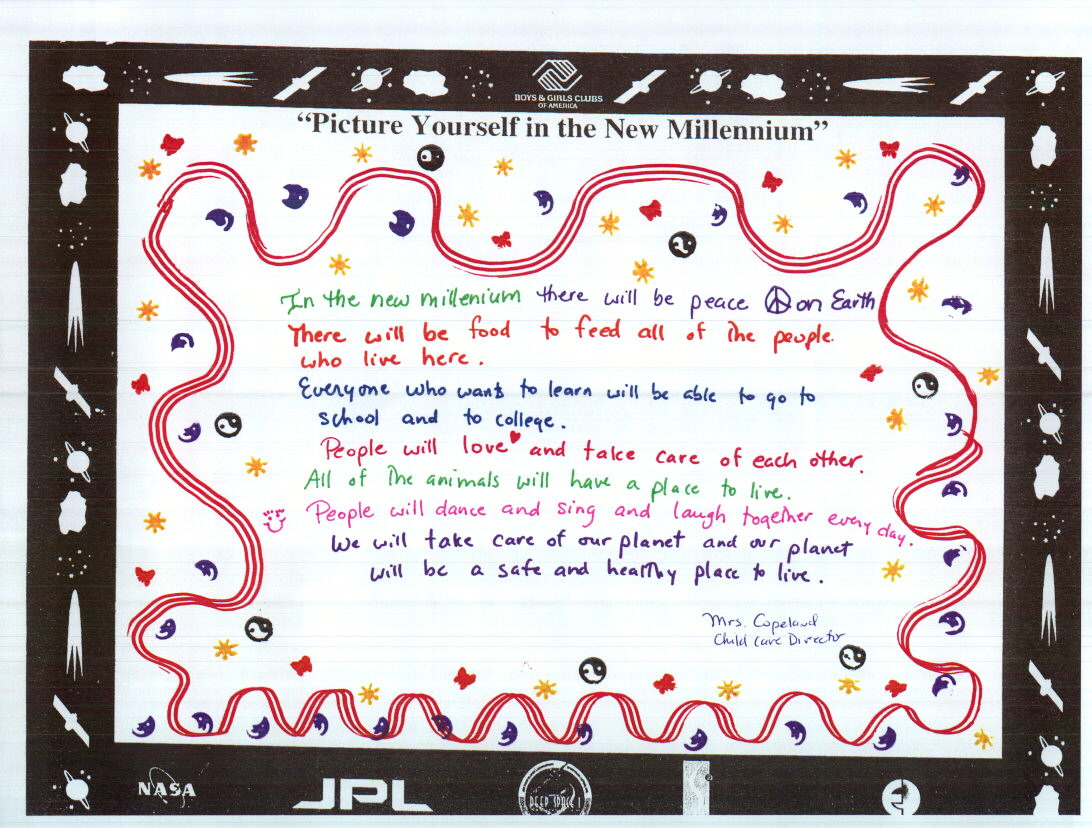 BOYS & GIRLS CLUBS
OF AMERICA
“Picture Yourself in the New Millennium”
In the new millenium there will be peace ☮ on Earth
There will be food to feed all of the people.
who live here.
Everyone who wants to learn will be able to go to
school and to college.
People will love♥ and take care of each other.
All of the animals will have a place to live.
People will dance and sing and laugh together every day.
We will take care of our planet and our planet
will be a safe and healthy place to live.
Mrs. Copeland
Child Care Director
NASA
JPL
DEEP SPACE 1